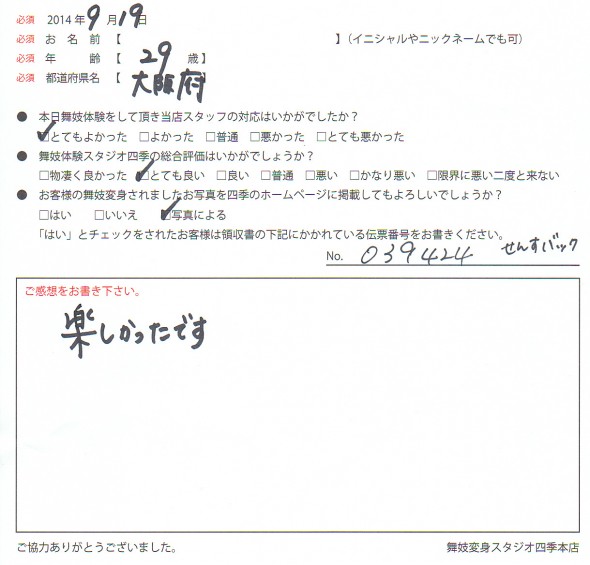 必須 2014年9月19日
必須 お名前【 】(イニシャルやニックネームでも可)
必須 年齢【 29 歳】
必須 都道府県名【大阪府】
● 本日舞妓体験をして頂き当店スタッフの対応はいかがでしたか？
☑とてもよかった □よかった □普通 □悪かった □とても悪かった
● 舞妓体験スタジオ四季の総合評価はいかがでしょうか？
□物凄く良かった ☑とても良い □良い □普通 □悪い □かなり悪い □限界に悪い二度と来ない
● お客様の舞妓変身されましたお写真を四季のホームページに掲載してもよろしいでしょうか？
□はい □いいえ ☑写真による
「はい」とチェックをされたお客様は領収書の下記にかかれている伝票番号をお書きください。
No. 039424 せんすバック
ご感想をお書き下さい。
楽しかったです
ご協力ありがとうございました。 舞妓変身スタジオ四季本店